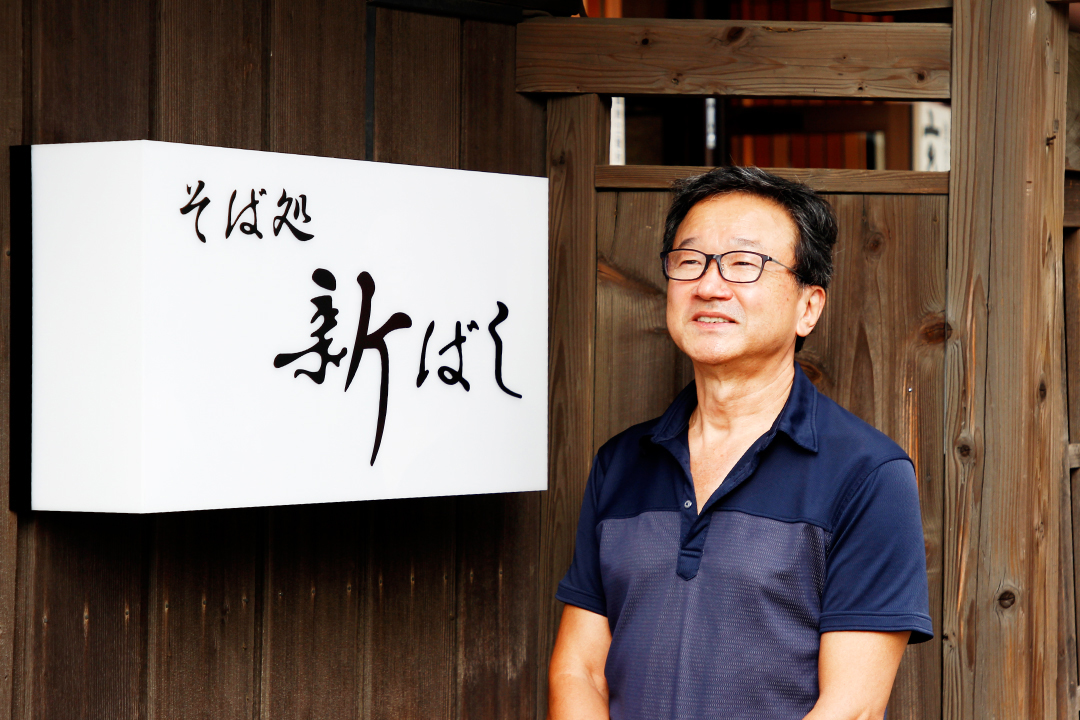 そば処
新ばし